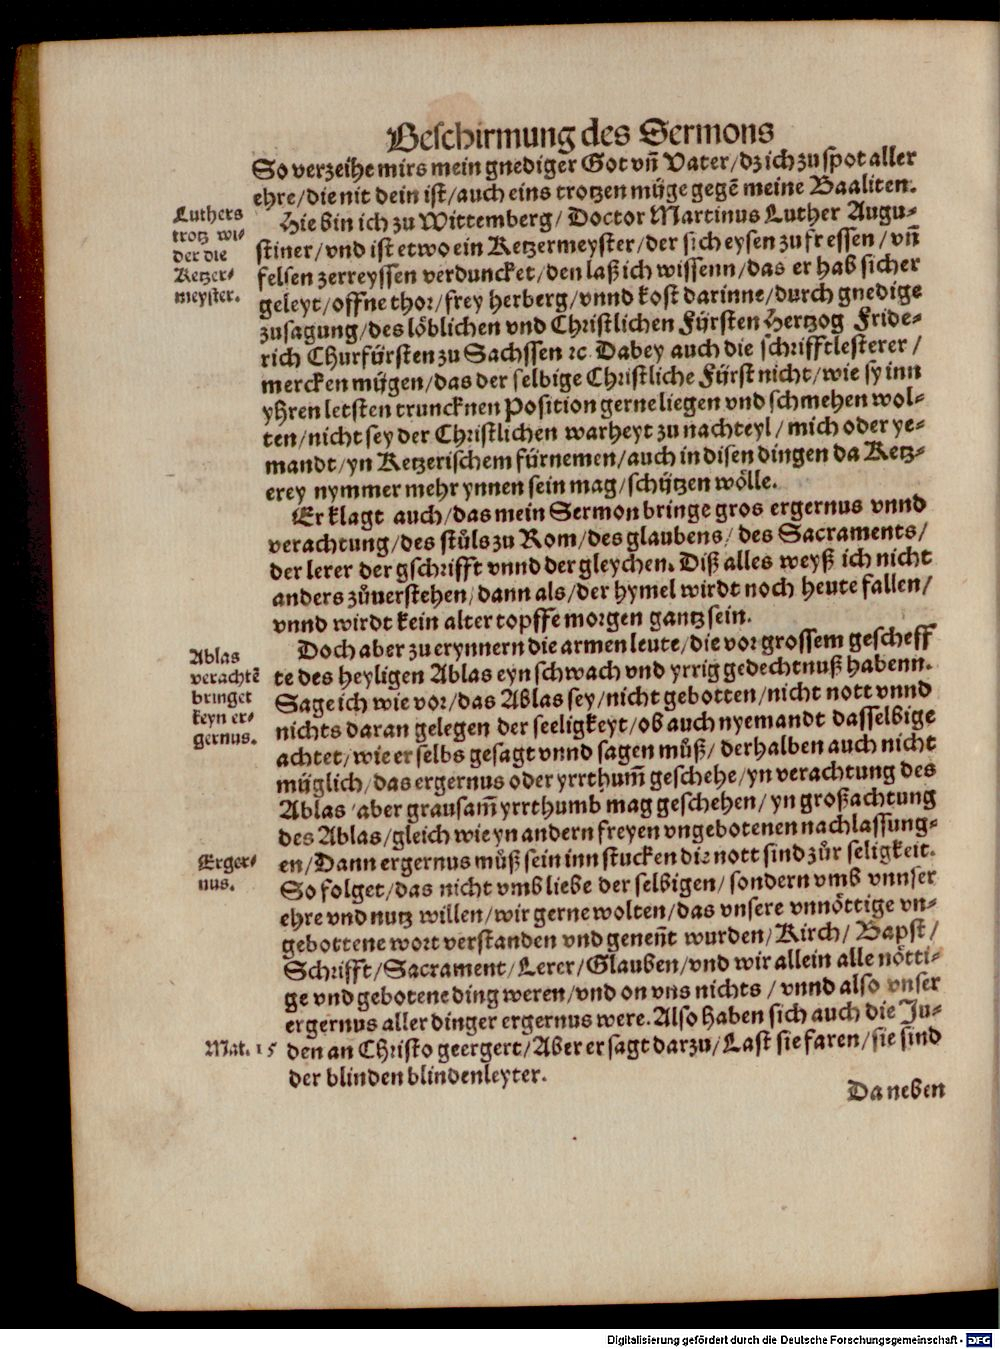 Beschirmung des Sermons
So verzeihe mirs mein gnediger Got vn̄ Vater/dz ich zu spot aller
ehre/die nit dein ist/auch eins trotzen müge gegē meine Baaliten.
Luthers
trotz wi-
der die
Ketzer-
meyster.
Hie bin ich zu Wittemberg/ Doctor Martinus Luther Augu-
stiner/vnd ist etwo ein Ketzermeyster/der sich eysen zu fressen/vn̄
felsen zerreyssen verduncket/den laß ich wissenn/das er hab sicher
geleyt/offne thor/frey herberg/vnnd kost darinne/durch gnedige
zusagung/des löblichen vnd Christlichen Fürsten Hertzog Fride-
rich Churfürsten zu Sachssen ⁊c. Dabey auch die schrifftlesterer/
mercken mügen/das der selbige Christliche Fürst nicht/wie sy inn
yhren letsten truncknen Position gerne liegen vnd schmehen wol-
ten/nicht sey der Christlichen warheyt zu nachteyl/mich oder ye-
mandt/yn Ketzerischem fürnemen/auch in disen dingen da Ketz-
erey nymmer mehr ynnen sein mag/schützen wölle.
Er klagt auch/das mein Sermon bringe gros ergernus vnnd
verachtung/des stůls zu Rom/des glaubens/des Sacraments/
der lerer der gschrifft vnnd der gleychen. Diß alles weyß ich nicht
anders zůuerstehen/dann als/der hymel wirdt noch heute fallen/
vnnd wirdt kein alter topffe morgen gantz sein.
Ablas
verachtē
bringet
keyn er-
gernus.
Doch aber zu erynnern die armen leute/die vor grossem gescheff
te des heyligen Ablas eyn schwach vnd yrrig gedechtnuß habenn.
Sage ich wie vor/das Ablas sey/nicht gebotten/nicht nott vnnd
nichts daran gelegen der seeligkeyt/ob auch nyemandt dasselbige
achtet/wie er selbs gesagt vnnd sagen můß/derhalben auch nicht
müglich/das ergernus oder yrrthum̄ geschehe/yn verachtung des
Ablas/aber grausam̄ yrrthumb mag geschehen/yn großachtung
des Ablas/gleich wie yn andern freyen vngebotenen nachlassung-
Erger-
nus.
en/Dann ergernus můß sein inn stucken die nott sind zůr seligkeit.
So folget/das nicht vmb liebe der selbigen/sondern vmb vnnser
ehre vnd nutz willen/wir gerne wolten/das vnsere vnnöttige vn-
gebottene wort verstanden vnd genen̄t wurden/Kirch/ Bapst/
Schrifft/Sacrament/Lerer/Glauben/vnd wir allein alle nötti-
ge vnd gebotene ding weren/vnd on vns nichts/vnnd also vnser
ergernus aller dinger ergernus were. Also haben sich auch die Ju-
Mat. 15
den an Christo geergert/Aber er sagt darzu/Last sie faren/sie sind
der blinden blindenleyter.
Da neben
Digitalisierung gefördert durch die Deutsche Forschungsgemeinschaft - DFG